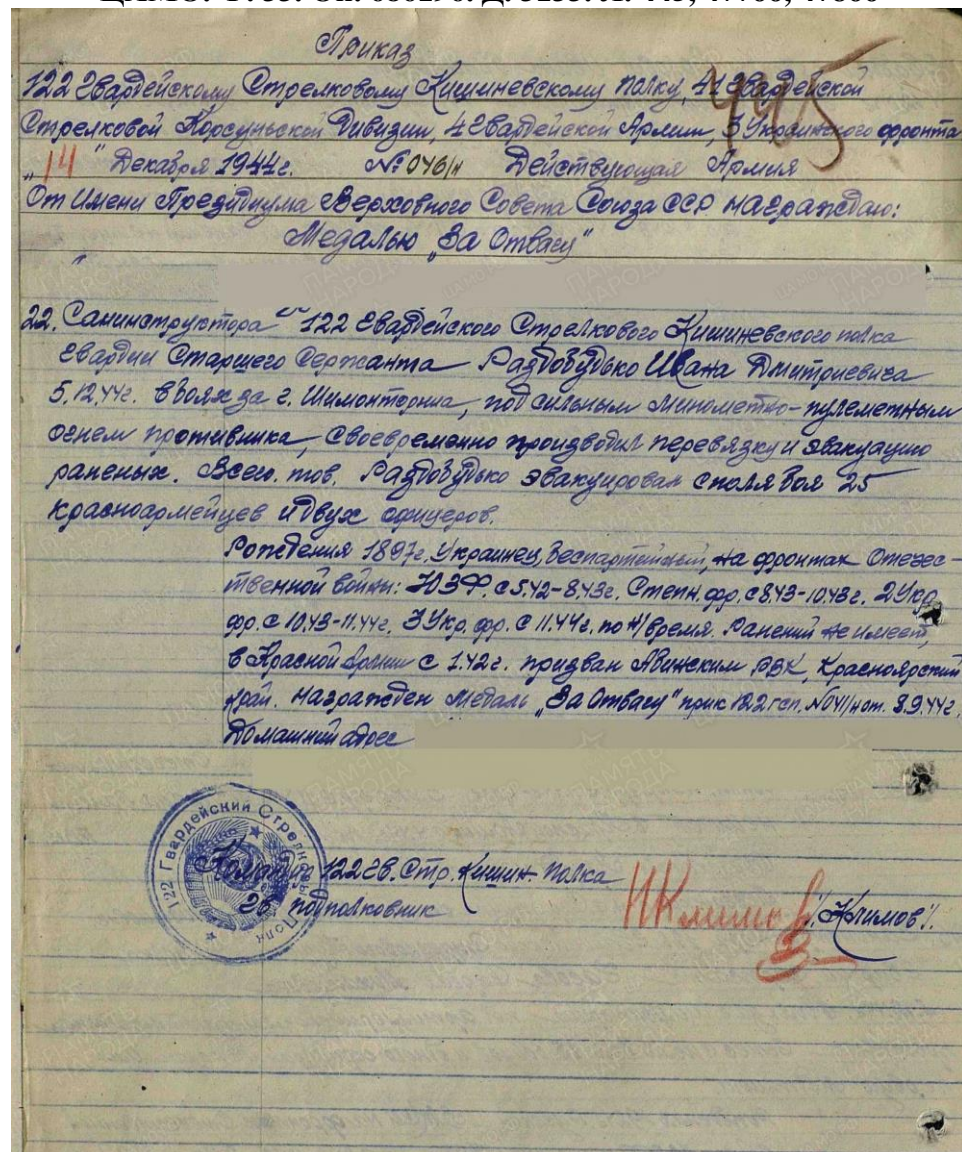 Приказ
445
122 Гвардейскому Стрелковому Кишиневскому полку, 41 Гвардейской
Стрелковой Корсуньской Дивизии, 4 Гвардейской Армии, 3 Украинского фронта
"14" Декабря 1944г. № 046/н Действующая Армия
От Имени Президиума Верховного Совета Союза ССР награждаю:
Медалью "За Отвагу"
22. Санинструктора 122 Гвардейского Стрелкового Кишиневского полка
Гвардии Старшего Сержанта Раздобудько Ивана Дмитриевича
5.12.44г. в боях за г. Шимонторниа, под сильным минометно-пулеметным
огнем противника, своевременно производил перевязку и эвакуацию
раненых. Всего тов. Раздобудько эвакуировал с поля боя 25
красноармейцев и двух офицеров.
Рождения 1897г. Украинец, беспартийный, на фронтах Отечес-
твенной войны: ЮЗФ. с 5.42-8.43г. Степн. фр. с 8.43-10.43г. 2 Укр.
фр. с 10.43-11.44г. 3 Укр. фр. с 11.44г. по н/время. Ранений не имеет,
в Красной Армии с 1.42г. призван РВК, Красноярский
край. Награжден медаль "За Отвагу" прик 122 гсп. №041/н от. 8.9.44г.
Домашний адрес
122 Гвардейский Стрелковый Полк
Команд. 122 Гв. Стр. Кишин. полка
Гв. подполковник Климов /Климов/.
ПАМЯТЬ НАРОДА